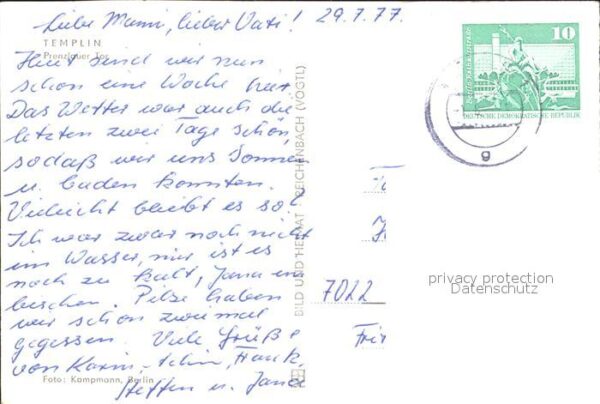 Liebe Mami, lieber Vati! 29.7.77.
TEMPLIN
Prenzlauer Tor
Heut sind wir nun
schon eine Woche hier.
Das Wetter war auch die
letzten zwei Tage schön,
sodaß wir uns sonnen
u. baden konnten.
Vielleicht bleibt es so.
Ich war zwar noch nicht
im Wasser, mir ist es
noch zu kalt, Jana ein
bischen. Pilze haben
wir schon zweimal
gegessen. Viele Grüße
von Karin, Frank,
Steffen u. Jana
Foto: Kampmann, Berlin
BILD UND HEIMAT REICHENBACH (VOGTL)
10
DEUTSCHE DEMOKRATISCHE REPUBLIK
g
7022
privacy protection
Datenschutz